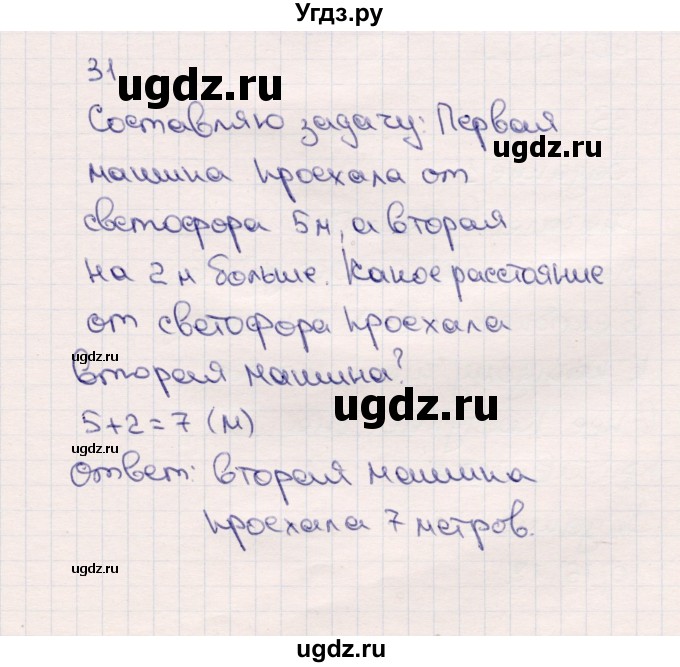 Угдз.ру
31
ugdz.ru
Составляю задачу: Первая
ugdz.ru
машина проехала от
светофора 5м, а вторая
на 2 м больше. Какое расстояние
от светофора проехала
ugdz.ru
вторая машина?
ugdz.ru
5+2=7 (м)
Ответ: вторая машина
проехала 7 метров.
ugdz.ru
ugdz.ru